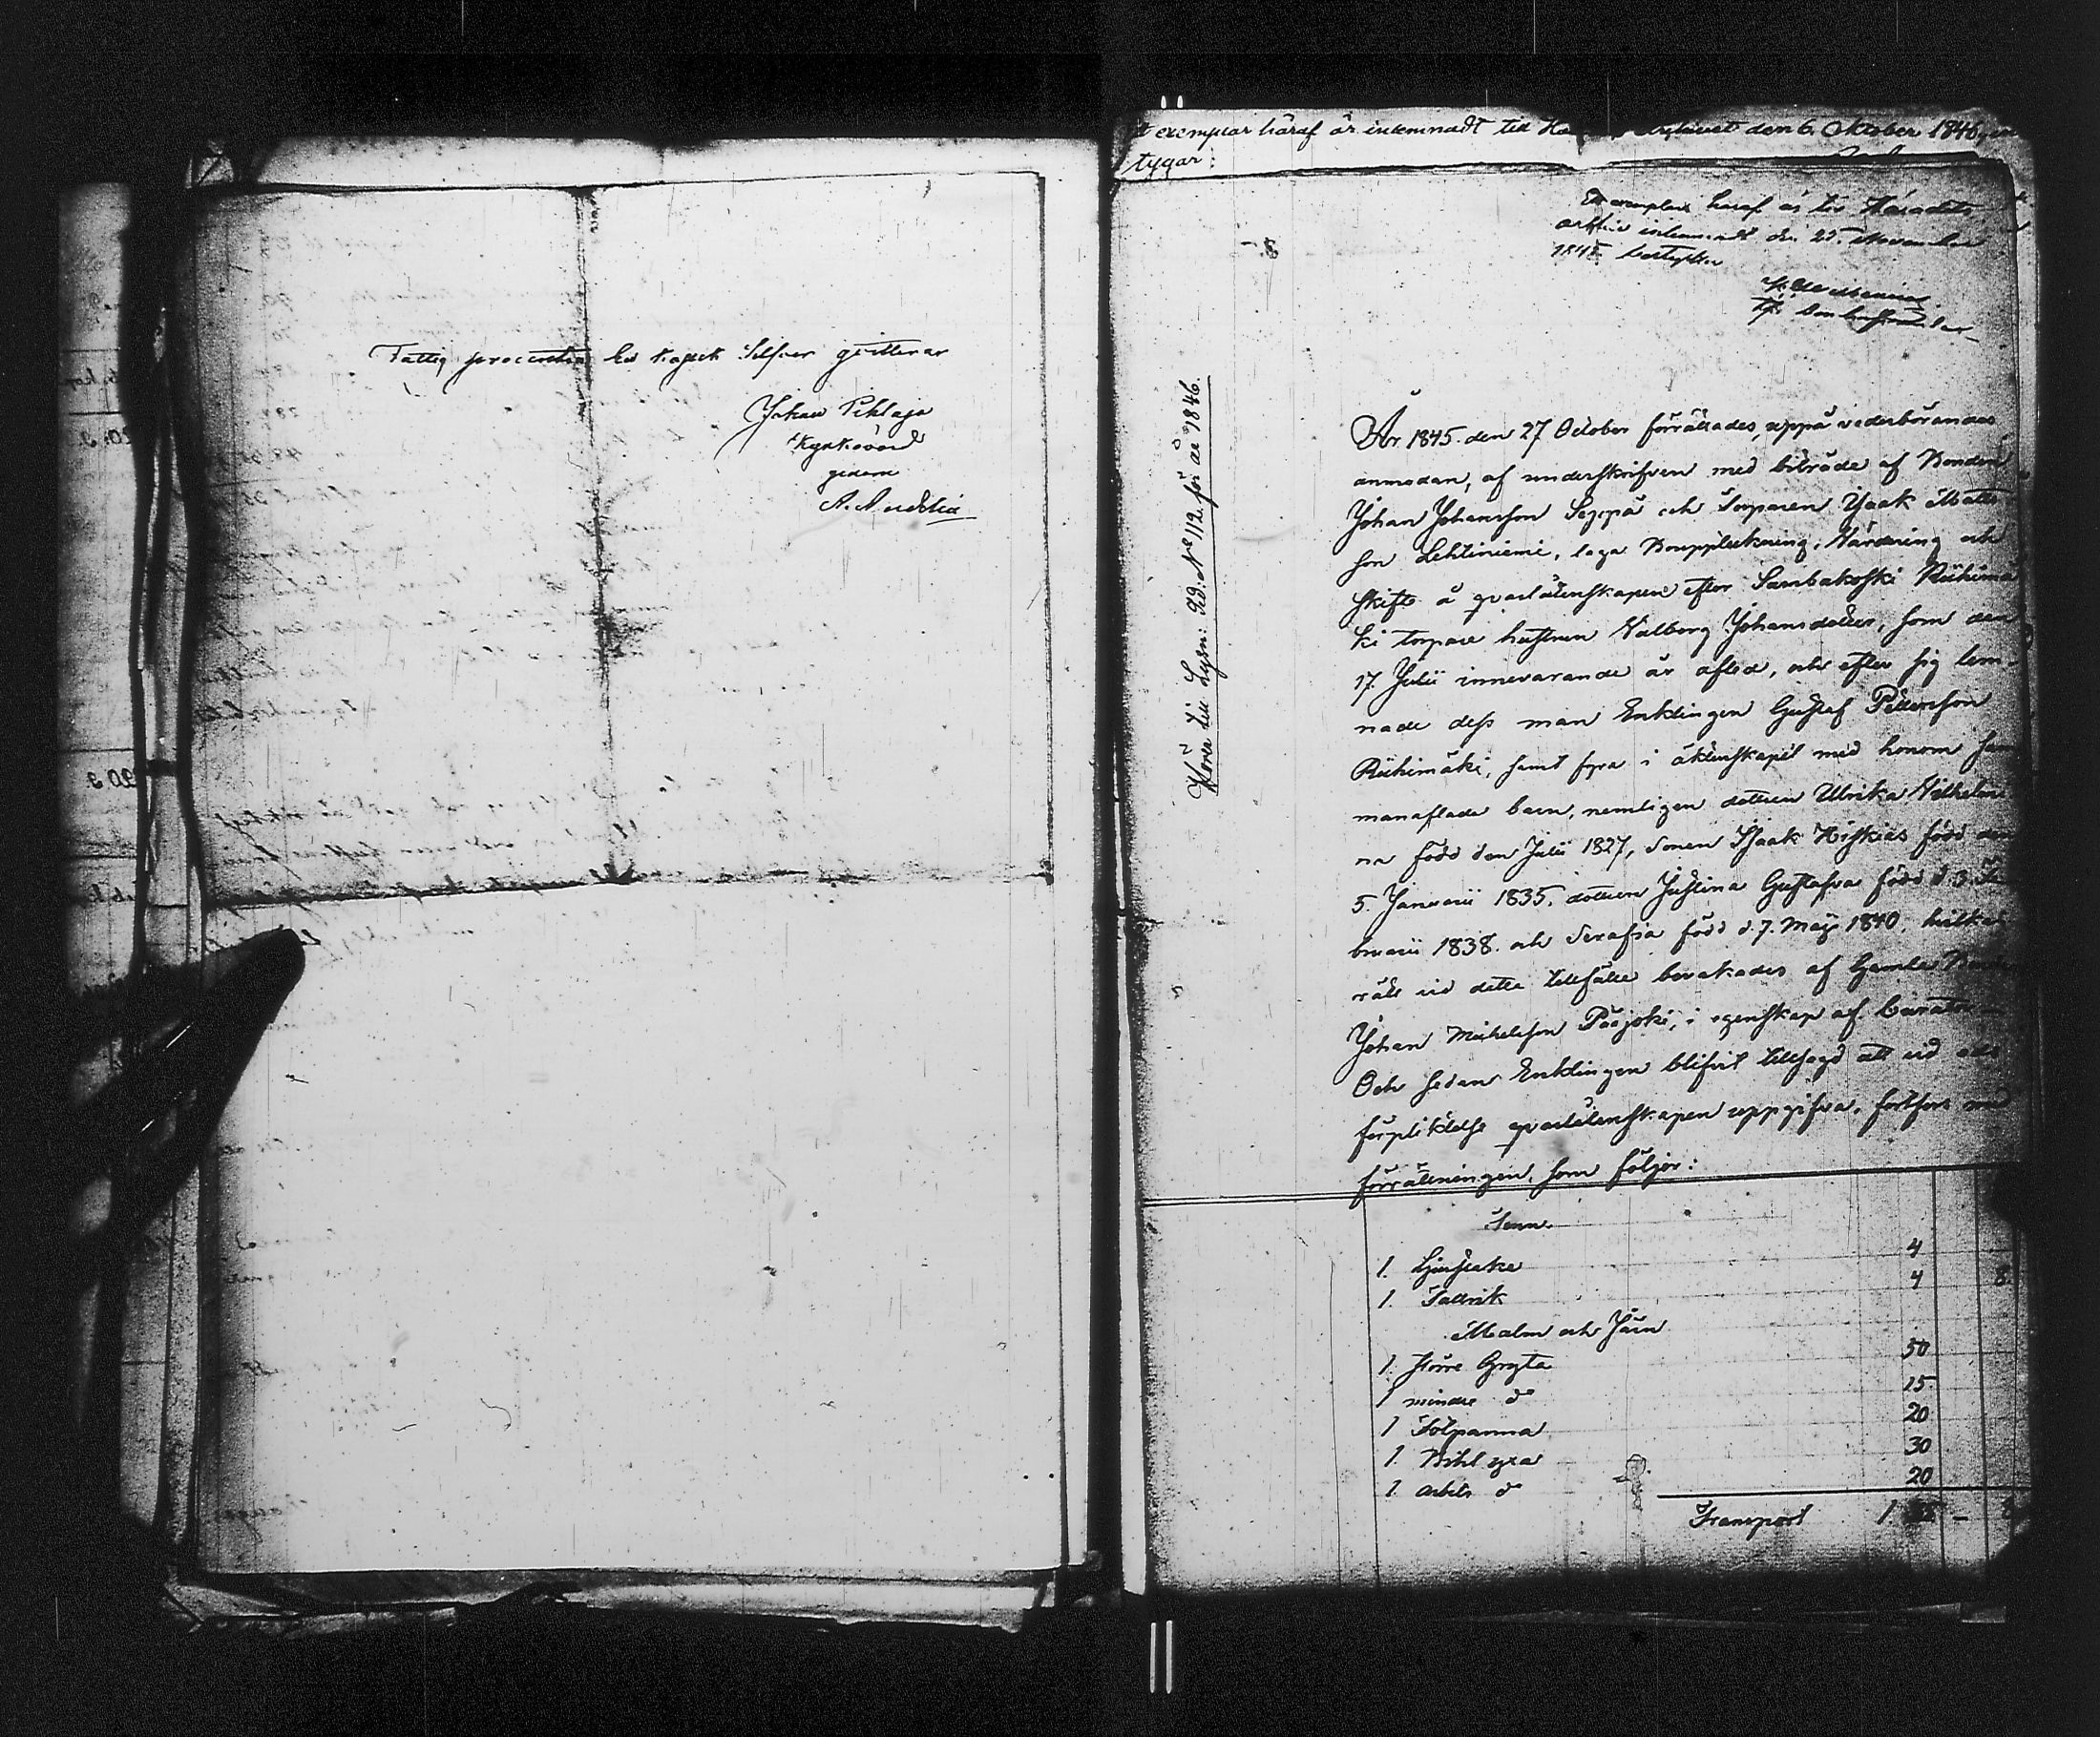 Fattig procenten En kopek Silfver qvitterar
Johan Pihlaja
Kyrkovärd
genom
exemplar häraf är inlemnadt till den 6 Oktober 1846,
tygar:
Ett exemplar häraf är till Häradets
arkiv inlemnadt den 25 November
1845 betygar
Hörer till Lysn: Prd: № 112. för år 1846.
År 1845 den 27 October förrättades, uppå vederbörandes
anmodan, af underskrifven med biträde af Bonden
Johan Johansson Seppä och Torparen Isaak Matts
son Lehtiniemi, laga Bouppteckning, Värdering och
skifte å qvarlåtenskapen efter Sambakoski Riihimä
ki torpare hustrun Valborg Johansdotter, som den
17 Julii innevarande år afled, och efter sig lem-
nade dess man Enklingen Gustaf Pettersson
Riihimäki, samt fyra i äktenskapet med honom sam
manaflade barn, nemligen dottren Ulrika Vilhelmi
na född den Julii 1827, Sonen Isaak Hiskias född den
5. Januarii 1835, dottren Justina Gustafva född d. 3. Fe
bruarii 1838. och Serafia född d. 7. Maji 1840. hvilkas
rätt vid detta tillfälle bevakades af Gamla Bonden
Johan Michelsson Pääjoki, i egenskap af Curator-
Och sedan Enklingen blifvit tillsagd att vid eds
förpliktelse qvarlåtenskapen uppgifva, fortfors med
förrättningen, som följer:
Tenn
1. Ljusstake 4
1. Tallrik 4 8.
Malm och Järn
1. större Gryta 50
1 mindre do 15
1 Stekpanna 20
1. Bihl yxa 30
1. arbets do 20
Transport 1.